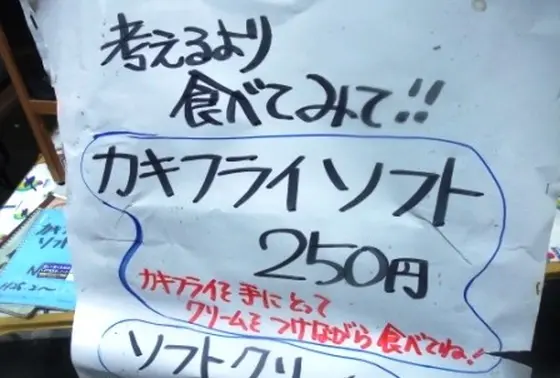 考えるより
食べてみて!!
カキフライソフト
250円
カキフライを手にとって
クリームをつけながら食べてね!
ソフトクリー